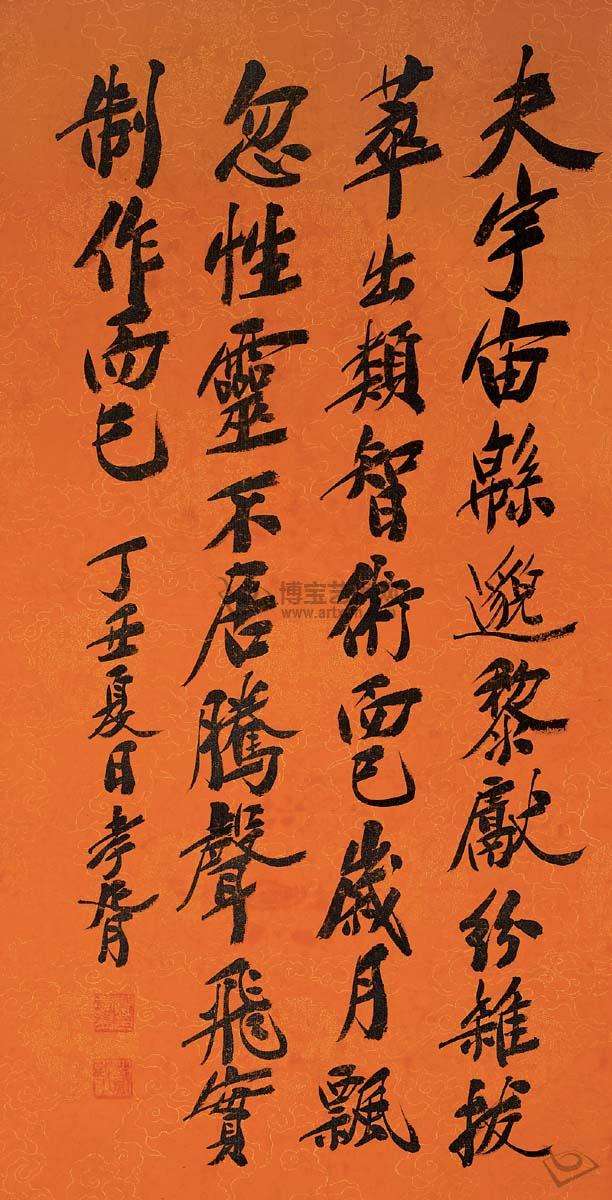 夫宇宙緜邈黎獻紛雜拔
萃出類智術而已歲月飄
忽性靈不居騰聲飛實
制作而已
丁丑夏日孝胥
博宝艺
www.artx